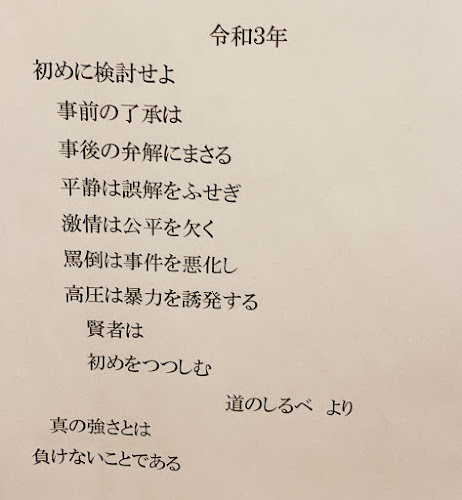 令和3年
初めに検討せよ
事前の了承は
事後の弁解にまさる
平静は誤解をふせぎ
激情は公平を欠く
罵倒は事件を悪化し
高圧は暴力を誘発する
賢者は
初めをつつしむ
道のしるべ より
真の強さとは
負けないことである